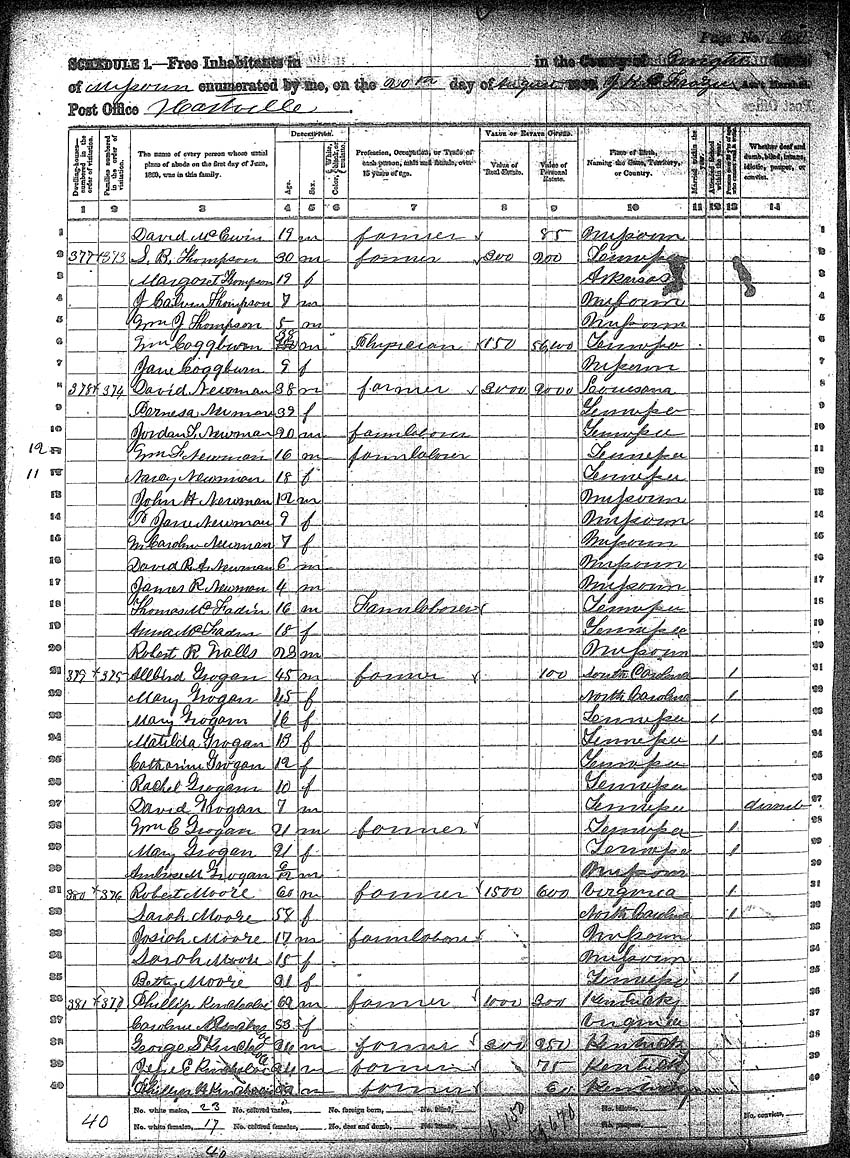 Page No.
SCHEDULE 1.—Free Inhabitants in in the County of State
of Missouri enumerated by me, on the 20th day of August 1860. Ass't Marshal.
Post Office Hartville
Dwelling-houses—numbered in the order of visitation.
Families numbered in the order of visitation.
The name of every person whose usual place of abode on the first day of June, 1860, was in this family.
DESCRIPTION.
Age.
Sex.
Color,
Profession, Occupation, or Trade of each person, male and female, over 15 years of age.
VALUE OF ESTATE OWNED.
Value of Real Estate.
Value of Personal Estate.
Place of Birth, Naming the State, Territory, or Country.
Married within the year.
Attended School within the year.
Whether deaf and dumb, blind, insane, idiotic, pauper, or convict.
1 2 3 4 5 6 7 8 9 10 11 12 13 14
1 David McEwin 19 m farmer 85 Missouri 1
2 377 373 S. B. Thompson 30 m farmer 300 200 Tennessee 2
3 Margaret Thompson 19 f Arkansas 3
4 J Calvin Thompson 7 m Missouri 4
5 Wm J Thompson 5 m Missouri 5
6 Wm Coggburn m Physician 150 Tennessee 6
7 Jane Coggburn 9 f Missouri 7
8 378 374 David Newman 38 m farmer 3000 2000 Louisiana 8
9 Newman 39 f Tennessee 9
10 Jordan Newman 20 m farmlaborer Tennessee 10
12 11 Wm Newman 16 m farmlaborer Tennessee 11
11 12 Narcy Newman 18 f Tennessee 12
13 John H Newman 12 m Missouri 13
14 Jane Newman 9 f Missouri 14
15 M Caroline Newman 7 f Missouri 15
16 David R A Newman 6 m Missouri 16
17 James R Newman 4 m Missouri 17
18 Thomas McFadin 16 m Farmlaborer Tennessee 18
19 Anna McFadin 18 f Tennessee 19
20 Robert R Walls m Missouri 20
21 379 375 Allbird Grogan 45 m farmer 100 South Carolina 1 21
22 Mary Grogan 45 f North Carolina 1 22
23 Mary Grogan 16 f Tennessee 1 23
24 Matilda Grogan 13 f Tennessee 1 24
25 Catharine Grogan 12 f Tennessee 25
26 Rachel Grogan 10 f Tennessee 26
27 David Grogan 7 m Tennessee 27
28 Wm E Grogan 21 m farmer Tennessee 1 28
29 Mary Grogan 21 f Tennessee 1 29
30 Ambrose M Grogan m Missouri 30
31 380 376 Robert Moore 60 m farmer 1500 600 Virginia 1 31
32 Sarah Moore 58 f North Carolina 1 32
33 Josiah Moore 17 m farmlaborer Missouri 33
34 Sarah Moore 15 f Missouri 34
35 Betty Moore 21 f Tennessee 1 35
36 381 377 Phillip 62 m farmer 1000 300 Kentucky 36
37 Caroline 53 f Virginia 37
38 George m farmer 300 250 Kentucky 38
39 Jesse E m farmer 75 Kentucky 39
40 Phillip H m farmer 60 Kentucky 40
40 No. white males, 23 No. colored males, No. foreign born, No. blind,
No. white females, 17 No. colored females, No. deaf and dumb, No. insane, 6,150 No. idiotic, No. paupers, No. convicts,
40